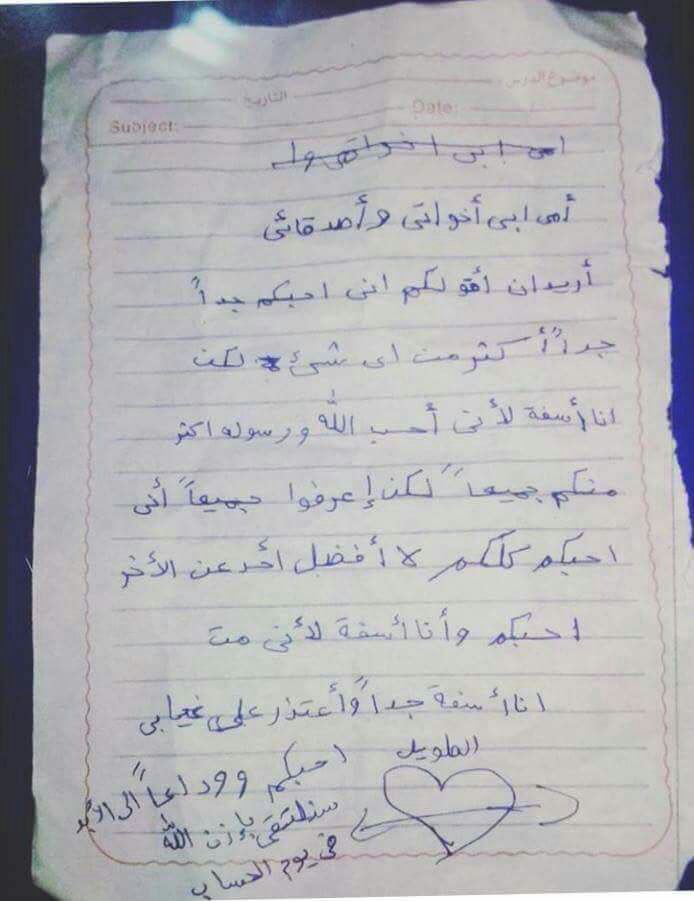 موضوع الدرس:
التاريخ
Date:
Subject:
امى ابى اخواتى وا
أمى ابى أخواتى وأصدقائى
أريد ان أقولكم انى احبكم جداً
جداً أكثر من اى شئ لكن
انا أسفة لأنى أحب الله ورسوله اكثر
منكم جميعاً لكن إعرفوا جميعاً أنى
احبكم كلكم لا أفضل أحد عن الأخر
احبكم وأنا أسفة لأنى مت
انا أسفة جداً وأعتذر على غيابى
الطويل
احبكم ووداعاً الى الابد
سنلتقى بإذن الله
فى يوم الحساب